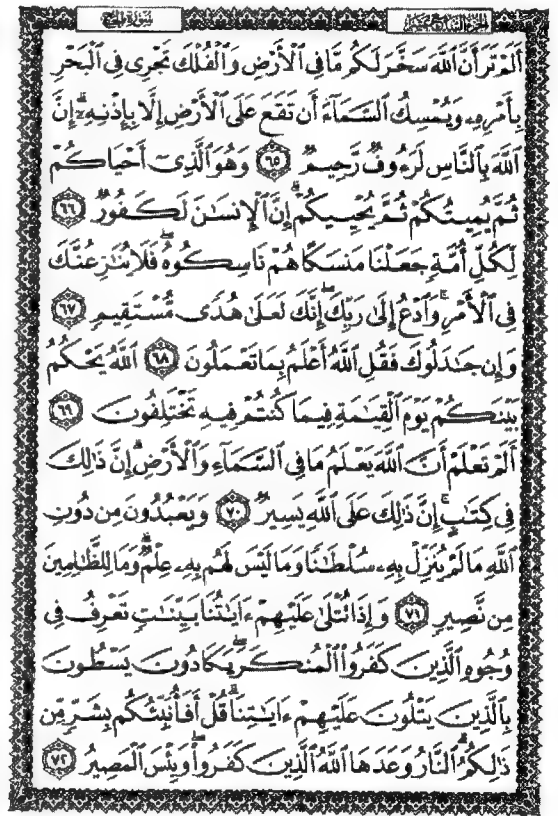 سُورَةُ الحَجّ
الجزء السابع عشر
أَلَمْ تَرَ أَنَّ ٱللَّهَ سَخَّرَ لَكُم مَّا فِى ٱلْأَرْضِ وَٱلْفُلْكَ تَجْرِى فِى ٱلْبَحْرِ
بِأَمْرِهِۦ وَيُمْسِكُ ٱلسَّمَآءَ أَن تَقَعَ عَلَى ٱلْأَرْضِ إِلَّا بِإِذْنِهِۦٓ ۗ إِنَّ
ٱللَّهَ بِٱلنَّاسِ لَرَءُوفٌ رَّحِيمٌ ٦٥ وَهُوَ ٱلَّذِىٓ أَحْيَاكُمْ
ثُمَّ يُمِيتُكُمْ ثُمَّ يُحْيِيكُمْ ۗ إِنَّ ٱلْإِنسَٰنَ لَكَفُورٌ ٦٦
لِّكُلِّ أُمَّةٍ جَعَلْنَا مَنسَكًا هُمْ نَاسِكُوهُ ۖ فَلَا يُنَٰزِعُنَّكَ
فِى ٱلْأَمْرِ ۚ وَٱدْعُ إِلَىٰ رَبِّكَ ۖ إِنَّكَ لَعَلَىٰ هُدًى مُّسْتَقِيمٍ ٦٧
وَإِن جَٰدَلُوكَ فَقُلِ ٱللَّهُ أَعْلَمُ بِمَا تَعْمَلُونَ ٦٨ ٱللَّهُ يَحْكُمُ
بَيْنَكُمْ يَوْمَ ٱلْقِيَٰمَةِ فِيمَا كُنتُمْ فِيهِ تَخْتَلِفُونَ ٦٩
أَلَمْ تَعْلَمْ أَنَّ ٱللَّهَ يَعْلَمُ مَا فِى ٱلسَّمَآءِ وَٱلْأَرْضِ ۗ إِنَّ ذَٰلِكَ
فِى كِتَٰبٍ ۚ إِنَّ ذَٰلِكَ عَلَى ٱللَّهِ يَسِيرٌ ٧٠ وَيَعْبُدُونَ مِن دُونِ
ٱللَّهِ مَا لَمْ يُنَزِّلْ بِهِۦ سُلْطَٰنًا وَمَا لَيْسَ لَهُم بِهِۦ عِلْمٌ ۗ وَمَا لِلظَّٰلِمِينَ
مِن نَّصِيرٍ ٧١ وَإِذَا تُتْلَىٰ عَلَيْهِمْ ءَايَٰتُنَا بَيِّنَٰتٍ تَعْرِفُ فِى
وُجُوهِ ٱلَّذِينَ كَفَرُوا۟ ٱلْمُنكَرَ ۖ يَكَادُونَ يَسْطُونَ
بِٱلَّذِينَ يَتْلُونَ عَلَيْهِمْ ءَايَٰتِنَا ۗ قُلْ أَفَأُنَبِّئُكُم بِشَرٍّ مِّن
ذَٰلِكُمُ ۗ ٱلنَّارُ وَعَدَهَا ٱللَّهُ ٱلَّذِينَ كَفَرُوا۟ ۖ وَبِئْسَ ٱلْمَصِيرُ ٧٢